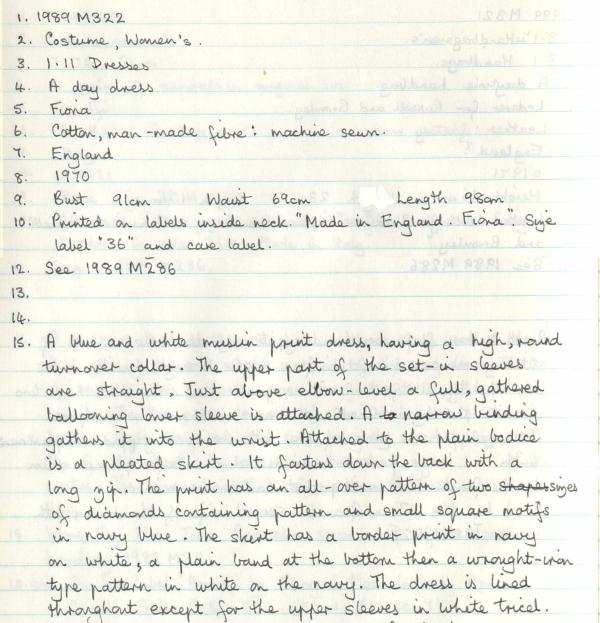 1. 1989 M322
2. Costume, Women's.
3. 1.11 Dresses
4. A day dress
5. Fiona
6. Cotton, man-made fibre: machine sewn.
7. England
8. 1970
9. Bust 91cm Waist 69cm Length 98cm
10. Printed on labels inside neck. "Made in England. Fiona". Size
label "36" and care label.
12. See 1989 M286
13.
14.
15. A blue and white muslin print dress, having a high, round
turnover collar. The upper part of the set-in sleeves
are straight. Just above elbow-level a full, gathered
ballooning lower sleeve is attached. A to narrow binding
gathers it into the wrist. Attached to the plain bodice
is a pleated skirt. It fastens down the back with a
long zip. The print has an all-over pattern of two shapes sizes
of diamonds containing pattern and small square motifs
in navy blue. The skirt has a border print in navy
on white, a plain band at the bottom then a wrought-iron
type pattern in white on the navy. The dress is lined
throughout except for the upper sleeves in white tricel.